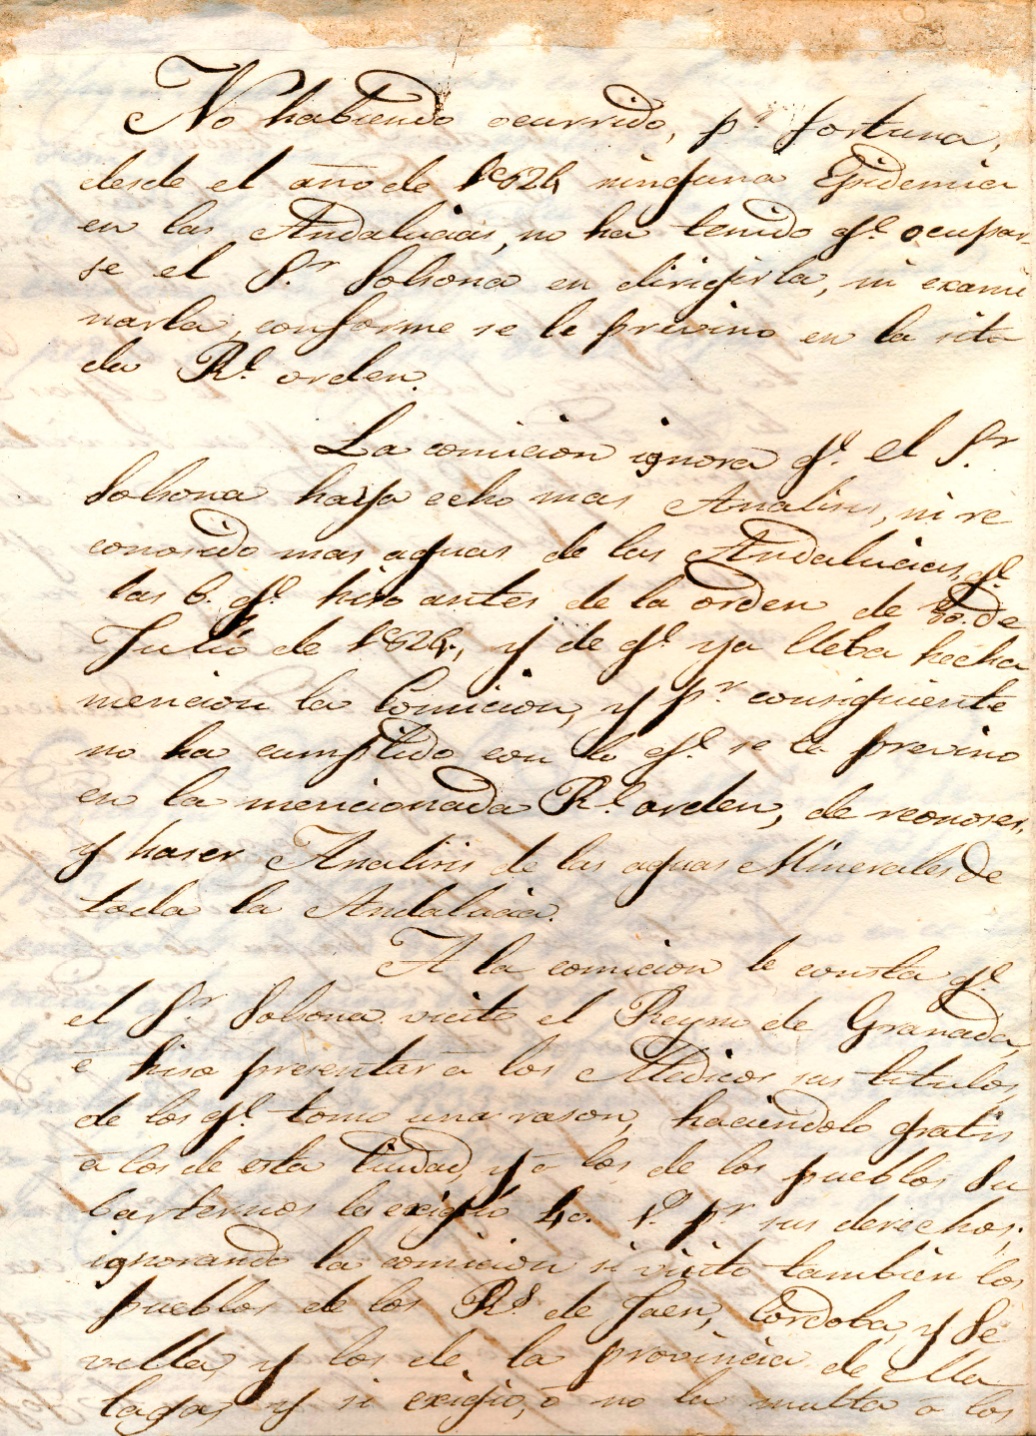 No habiendo ocurrido, pr. fortuna,
desde el año de 1824 ninguna Epidemia
en las Andalucias, no ha tenido qe. ocupar
se el Sr. Solsona en dirigirla, ni exami
narla, conforme se le previno en la sita
da Rl. orden.
La comicion ignora qe. el Sr.
Solsona haya echo mas Analisis, ni re
conosido mas aguas de las Andalucias, qe.
las 6. qe. hiso antes de la orden de de
Julio de 1824., y de qe. ya lleba hecha
mencion la Comicion, y pr. consiguiente
no ha cumplido con lo qe. se le previno
en la mencionada Rl. orden, de reconoser,
y haser Analisis de las aguas Minerales de
toda la Andalucia.
A la comicion le consta qe.
el Sr. Solsona vicito el Reyno de Granada,
é hiso presentar a los Medicos sus titulos,
de los qe. tomo una rason, haciendolo gratis
á los de esta Ciudad, y á los de los pueblos Su
barternos les exigió 40. rs. pr. sus derechos:
ignorando la comicion si vicito tambien los
pueblos de los Rs. de Jaen, Cordoba, y Se
villa, y los de la provincia de Ma
laga, y si exigio, ó no la multa a los